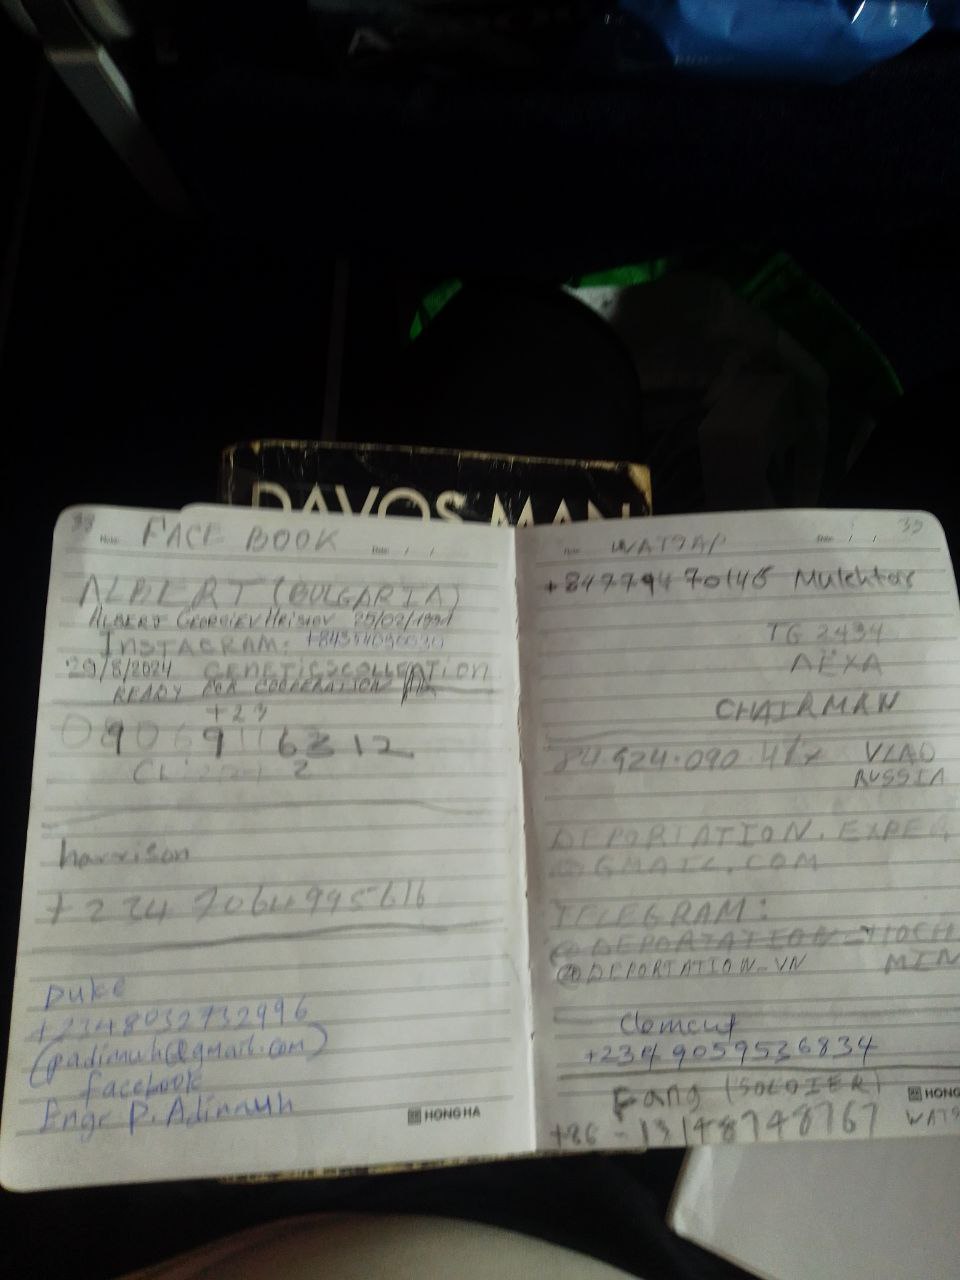 DAVOS MAN
33
Note:
FACE BOOK
Date: / /
ALBERT (BULGARIA)
ALBERT GEORGIEV HRISTOV 25/02/1991
INSTAGRAM:
29/8/2024 GENETICSCOLLEATION
READY FOR COOPERATION
+23
harrison
+234 7064995616
Duke
+2348032732996
(padimuh@gmail.com)
facebook
Engr P. Adimuh
HONG HA
39
WATSAP
/ /
+84779470146 Mukhtar
TG 2434
AEXA
CHAIRMAN
84.924.090
VLAD
RUSSIA
DEPORTATION.EXPE
@GMAIL.COM
TELEGRAM:
@DEPORTATION HOCH
@DEPORTATION_VN MIN
Clement
+234 9059536834
Fang (SOLDIER)
HONG
+86-13148748767 WATS